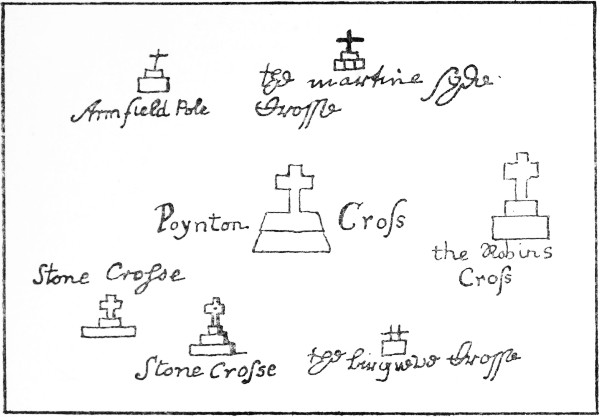 Armfield Pole
the martine ſyde
Croſſe
Poynton Croſs
the Robins
Croſs
Stone Croſse
Stone Croſse
the Croſſe